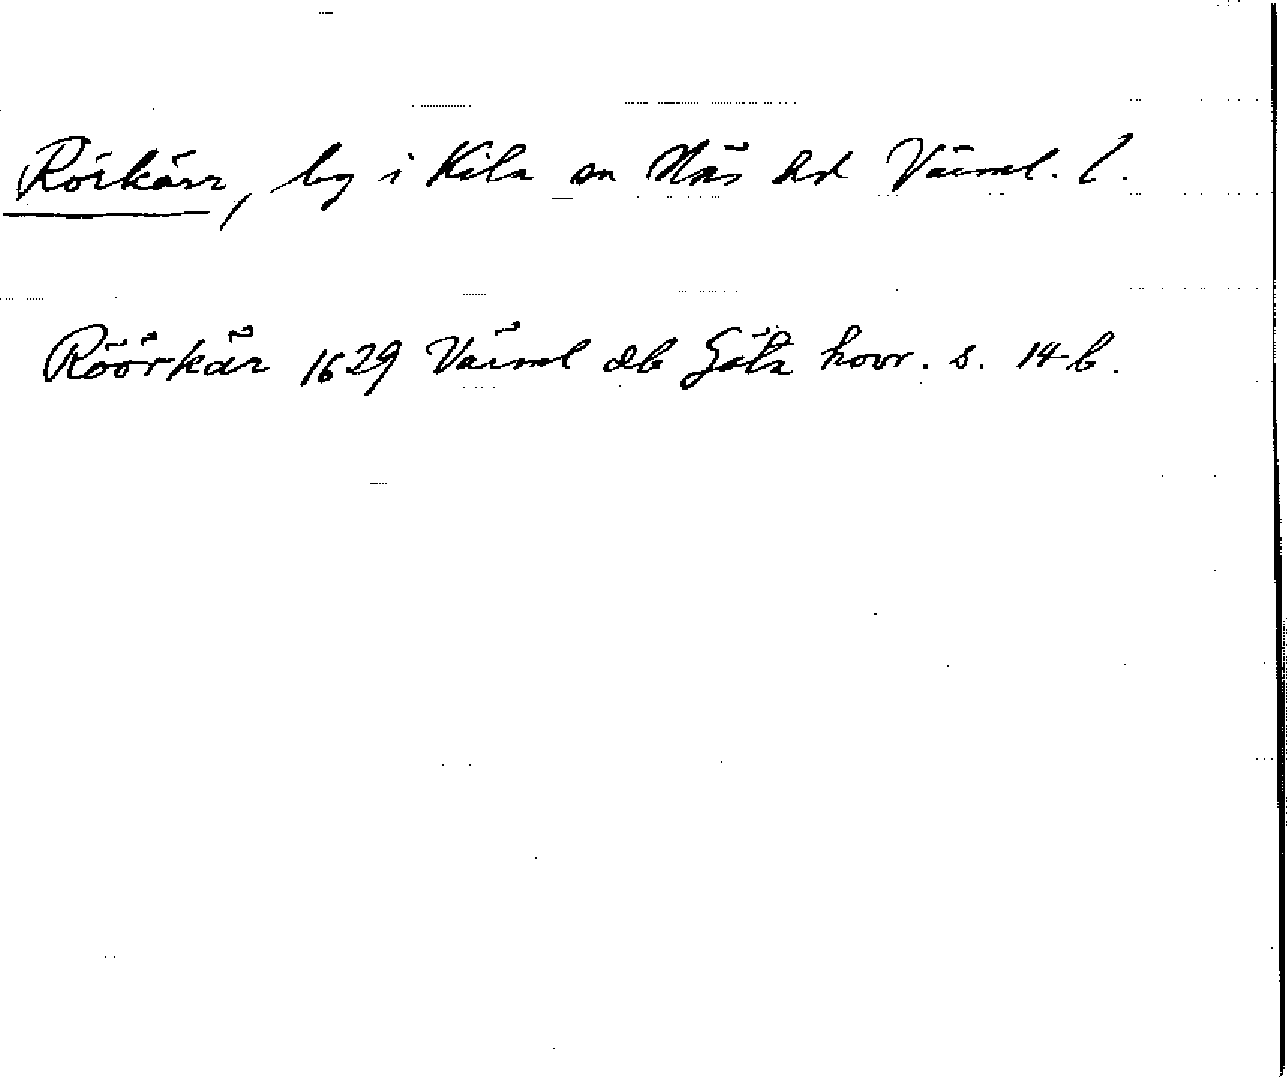 Rörkärr, by i Kila sn Näs hd Värml. l.
Röörkär 1629 Värml db Göta hovr. s. 14 b.